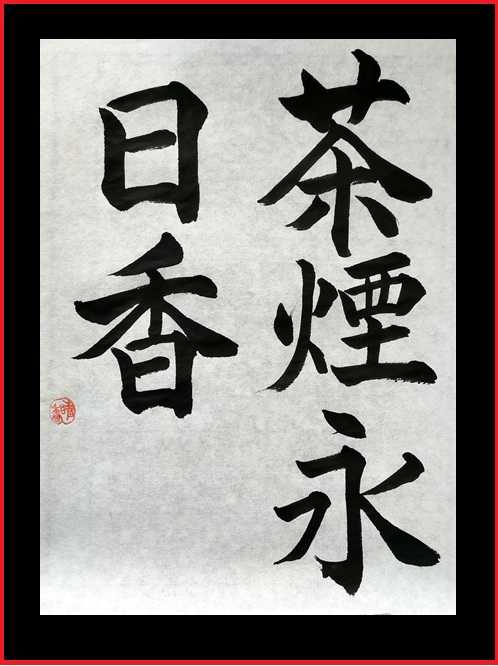 茶煙永
日香